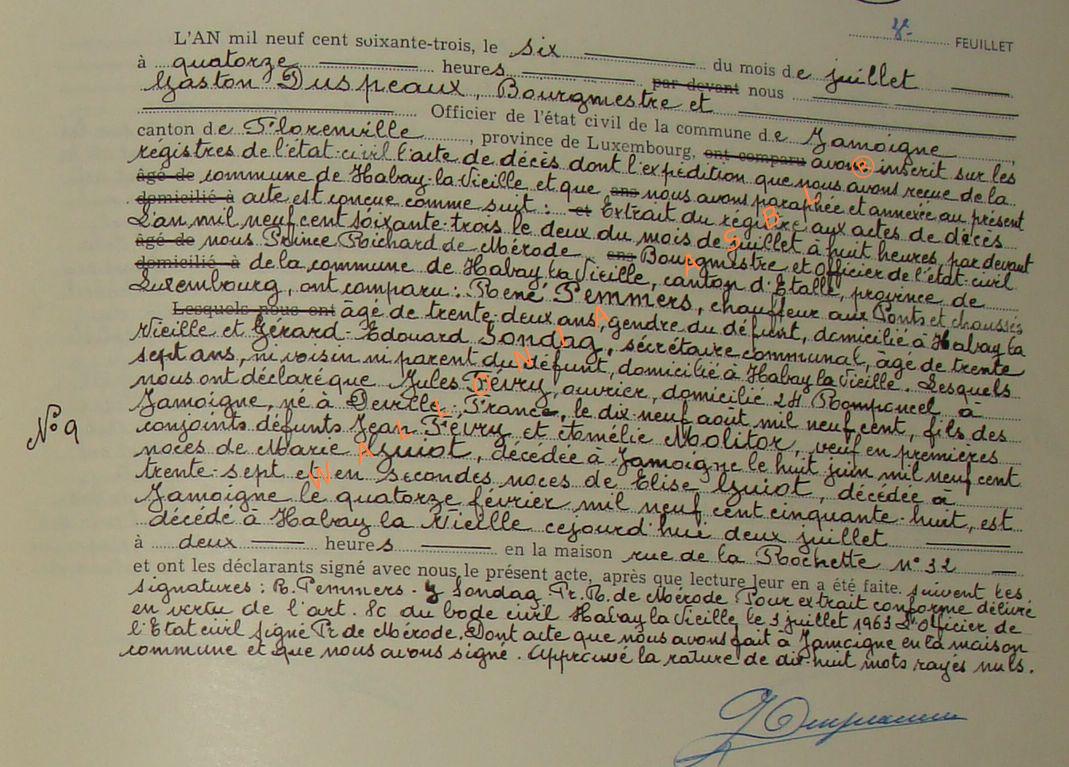 8.
FEUILLET
L'AN mil neuf cent soixante-trois, le six du mois de juillet
à quatorze heures par devant nous
Gaston Duspeaux, Bourgmestre et
Officier de l'état civil de la commune de Jamoigne
canton de Florenville, province de Luxembourg, ont comparu avons inscrit sur les
régistres de l'état-civil l'acte de décès dont l'expédition que nous avons reçue de la
âgé de commune de Habay-la-Vieille et que ans nous avons paraphée et annexée au présent
domicilié à acte est conçue comme suit : et Extrait du régistre aux actes de décès
L'an mil neuf cent soixante-trois le deux du mois de juillet à huit heures, par devant
âgé de nous Prince Richard de Mérode, ans Bourgmestre et Officier de l'état-civil
domicilié à de la commune de Habay la Vieille, canton d'Etalle, province de
Luxembourg, ont comparu : René Pemmers, chauffeur aux Ponts et chaussés
Lesquels nous ont âgé de trente-deux ans, gendre du défunt, domicilié à Habay la
Vieille et Gérard-Edouard Sondag, sécrétaire communal, âgé de trente
sept ans, ni voisin ni parent du défunt, domicilié à Habay la Vieille. Lesquels
nous ont déclaré que Jules Févry, ouvrier, domicilié 24 Romponcel à
Jamoigne, né à Deville, France, le dix-neuf août mil neuf cent, fils des
conjoints défunts Jean Févry et Amélie Molitor, veuf en premières
noces de Marie Guiot, décédée à Jamoigne le huit juin mil neuf cent
trente-sept et en secondes noces de Elise Guiot, décédée à
Jamoigne le quatorze février mil neuf cent cinquante-huit, est
décédé à Habay la Vieille cejourd'hui deux juillet
N° 9
à deux heures en la maison rue de la Rochette n° 32
et ont les déclarants signé avec nous le présent acte, après que lecture leur en a été faite. suivent les
signatures : R. Pemmers - G Sondag Pr. R. de Mérode Pour extrait conforme délivré
en vertu de l'art. 80 du Code civil Habay la Vieille, le 3 juillet 1963 L'Officier de
l'Etat civil signé Pr de Mérode. Dont acte que nous avons fait à Jamoigne en la maison
commune et que nous avons signé. Approuvé la rature de dix-huit mots rayés nuls.
WALLONIA ASBL ®